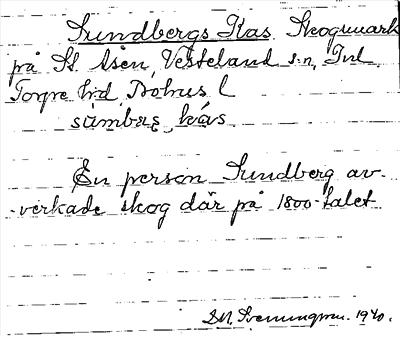 Sundbergs Kas Skogsmark
på St. Åsen, Vesteland s.n, Inl
Torpe h:d, Bohus l
sùmbæs, kás
En person Sundberg av-
verkade skog där på 1800-talet
1940.